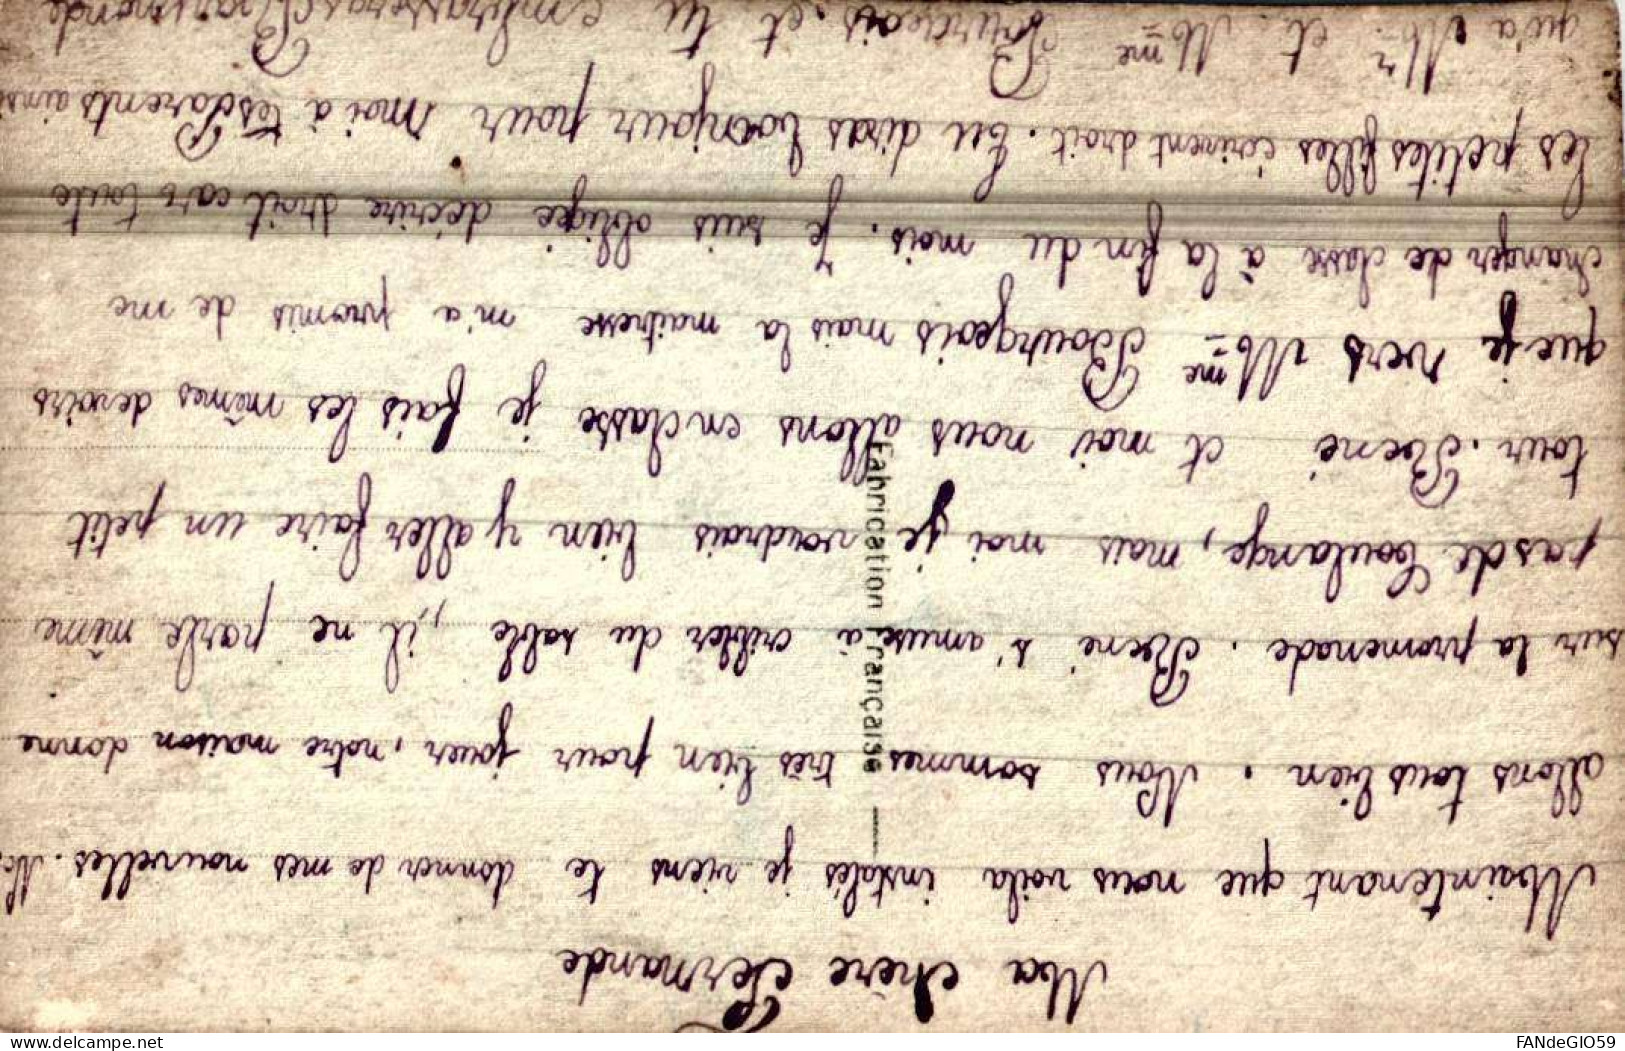 Ma chère Fernande
Maintenant que nous voila instalés je viens te donner de mes nouvelles. No
allons tous bien. Nous sommes très bien pour jouer, notre maison donne
sur la promenade. René s'amuse à cribler du sable, il ne parle même
pas de Coulange, mais moi je voudrais bien y aller faire un petit
tour. René et moi nous allons en classe je fais les mêmes devoirs
que je vers Mme Bourgeois mais la maitresse m'a promis de me
changer de classe à la fin du mois. Je suis obligée décrire droit car toute
les petites filles écrivent droit. Tu diras bonjour pour moi à tes Parents ainsi
qu'a Mr et Mme Bourgeois. et tu embrasseras Raymonde
Fabrication Française
delcampe.net
FANdeGIO59